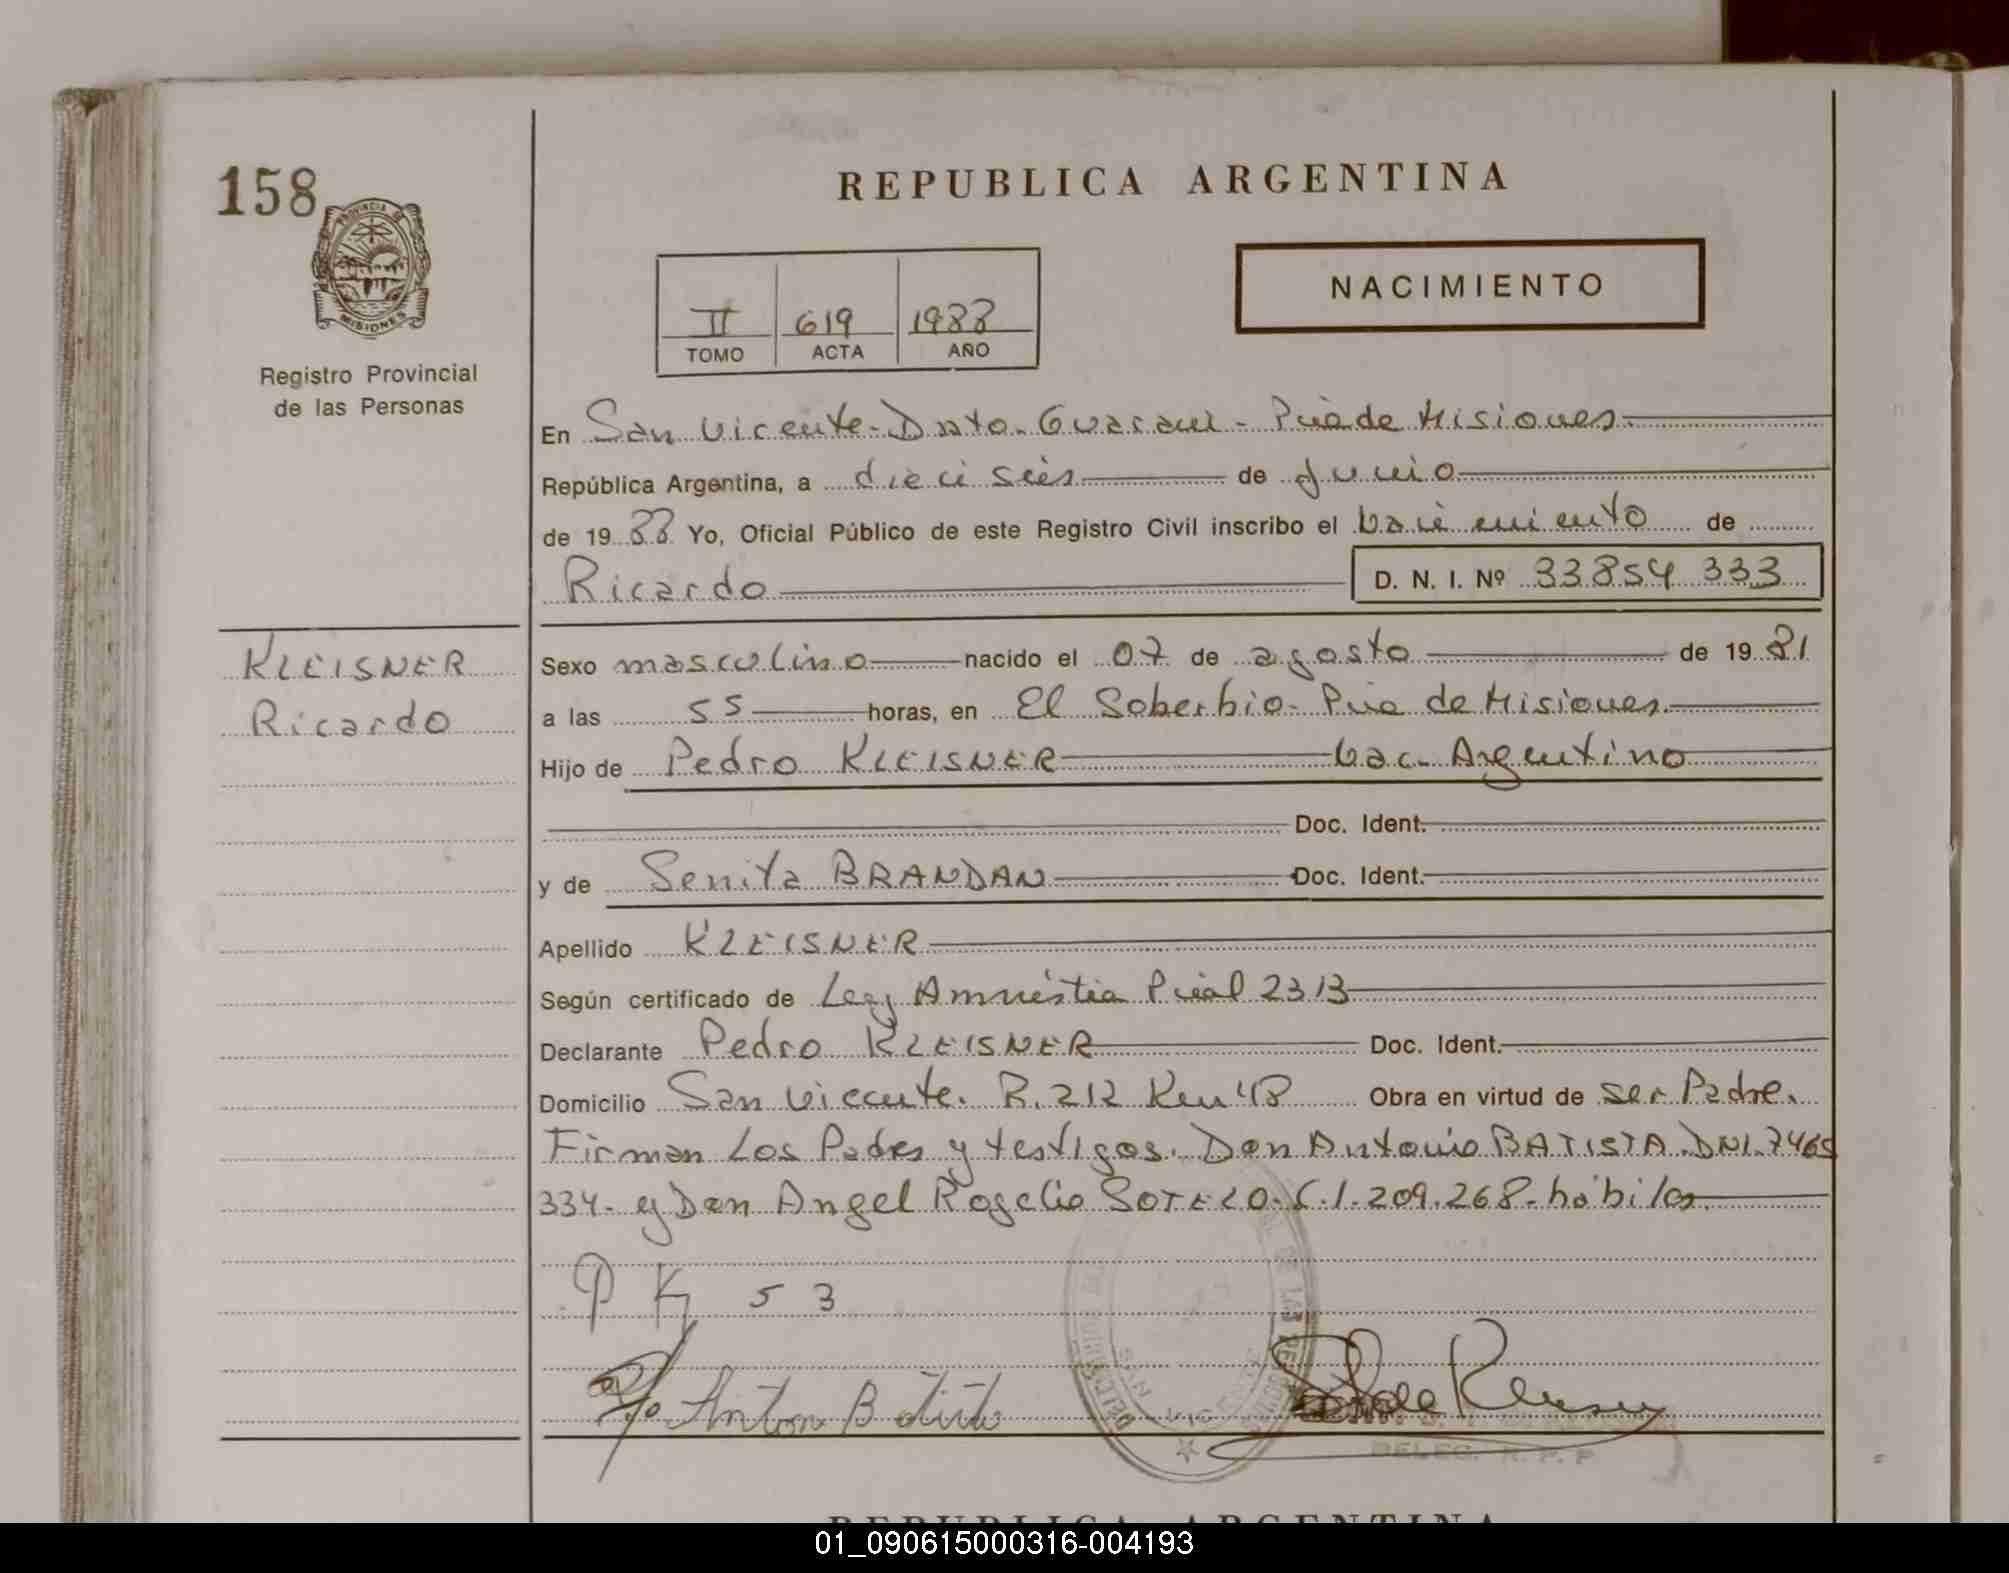 158
PROVINCIA DE
MISIONES
Registro Provincial
de las Personas
KLEISNER
Ricardo
REPUBLICA ARGENTINA
II 619 1988
TOMO ACTA AÑO
NACIMIENTO
En San Vicente - Dpto. Guaraní - Pcia de Misiones.
República Argentina, a dieciseis de Junio
de 1988 Yo, Oficial Público de este Registro Civil inscribo el nacimiento de
Ricardo D. N. I. Nº 33854 333
Sexo masculino nacido el 07 de agosto de 1981
a las 5 5 horas, en El Soberbio - Pcia de Misiones.
Hijo de Pedro KLEISNER nac. Argentino
Doc. Ident.
y de Senita BRANDAN Doc. Ident.
Apellido KLEISNER
Según certificado de Ley Amnistia Pcial 2313
Declarante Pedro KLEISNER Doc. Ident.
Domicilio San Vicente. R. 212 Km 48 Obra en virtud de ser Padre.
Firman Los Padres y testigos. Don Antonio BATISTA. DNI. 7465
334. y Don Angel Rogelio SOTELO. C.I. 209.268. hábiles
P K 5 3
Anton Batista
SAN VICENTE
DELEG. R. P. P
REPUBLICA ARGENTINA
01_090615000316-004193